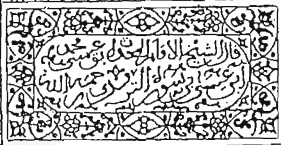 قال الشيخ الامام الحافظ ابو عيسى محمد
بن عيسى بن سورة الترمذي رحمه الله